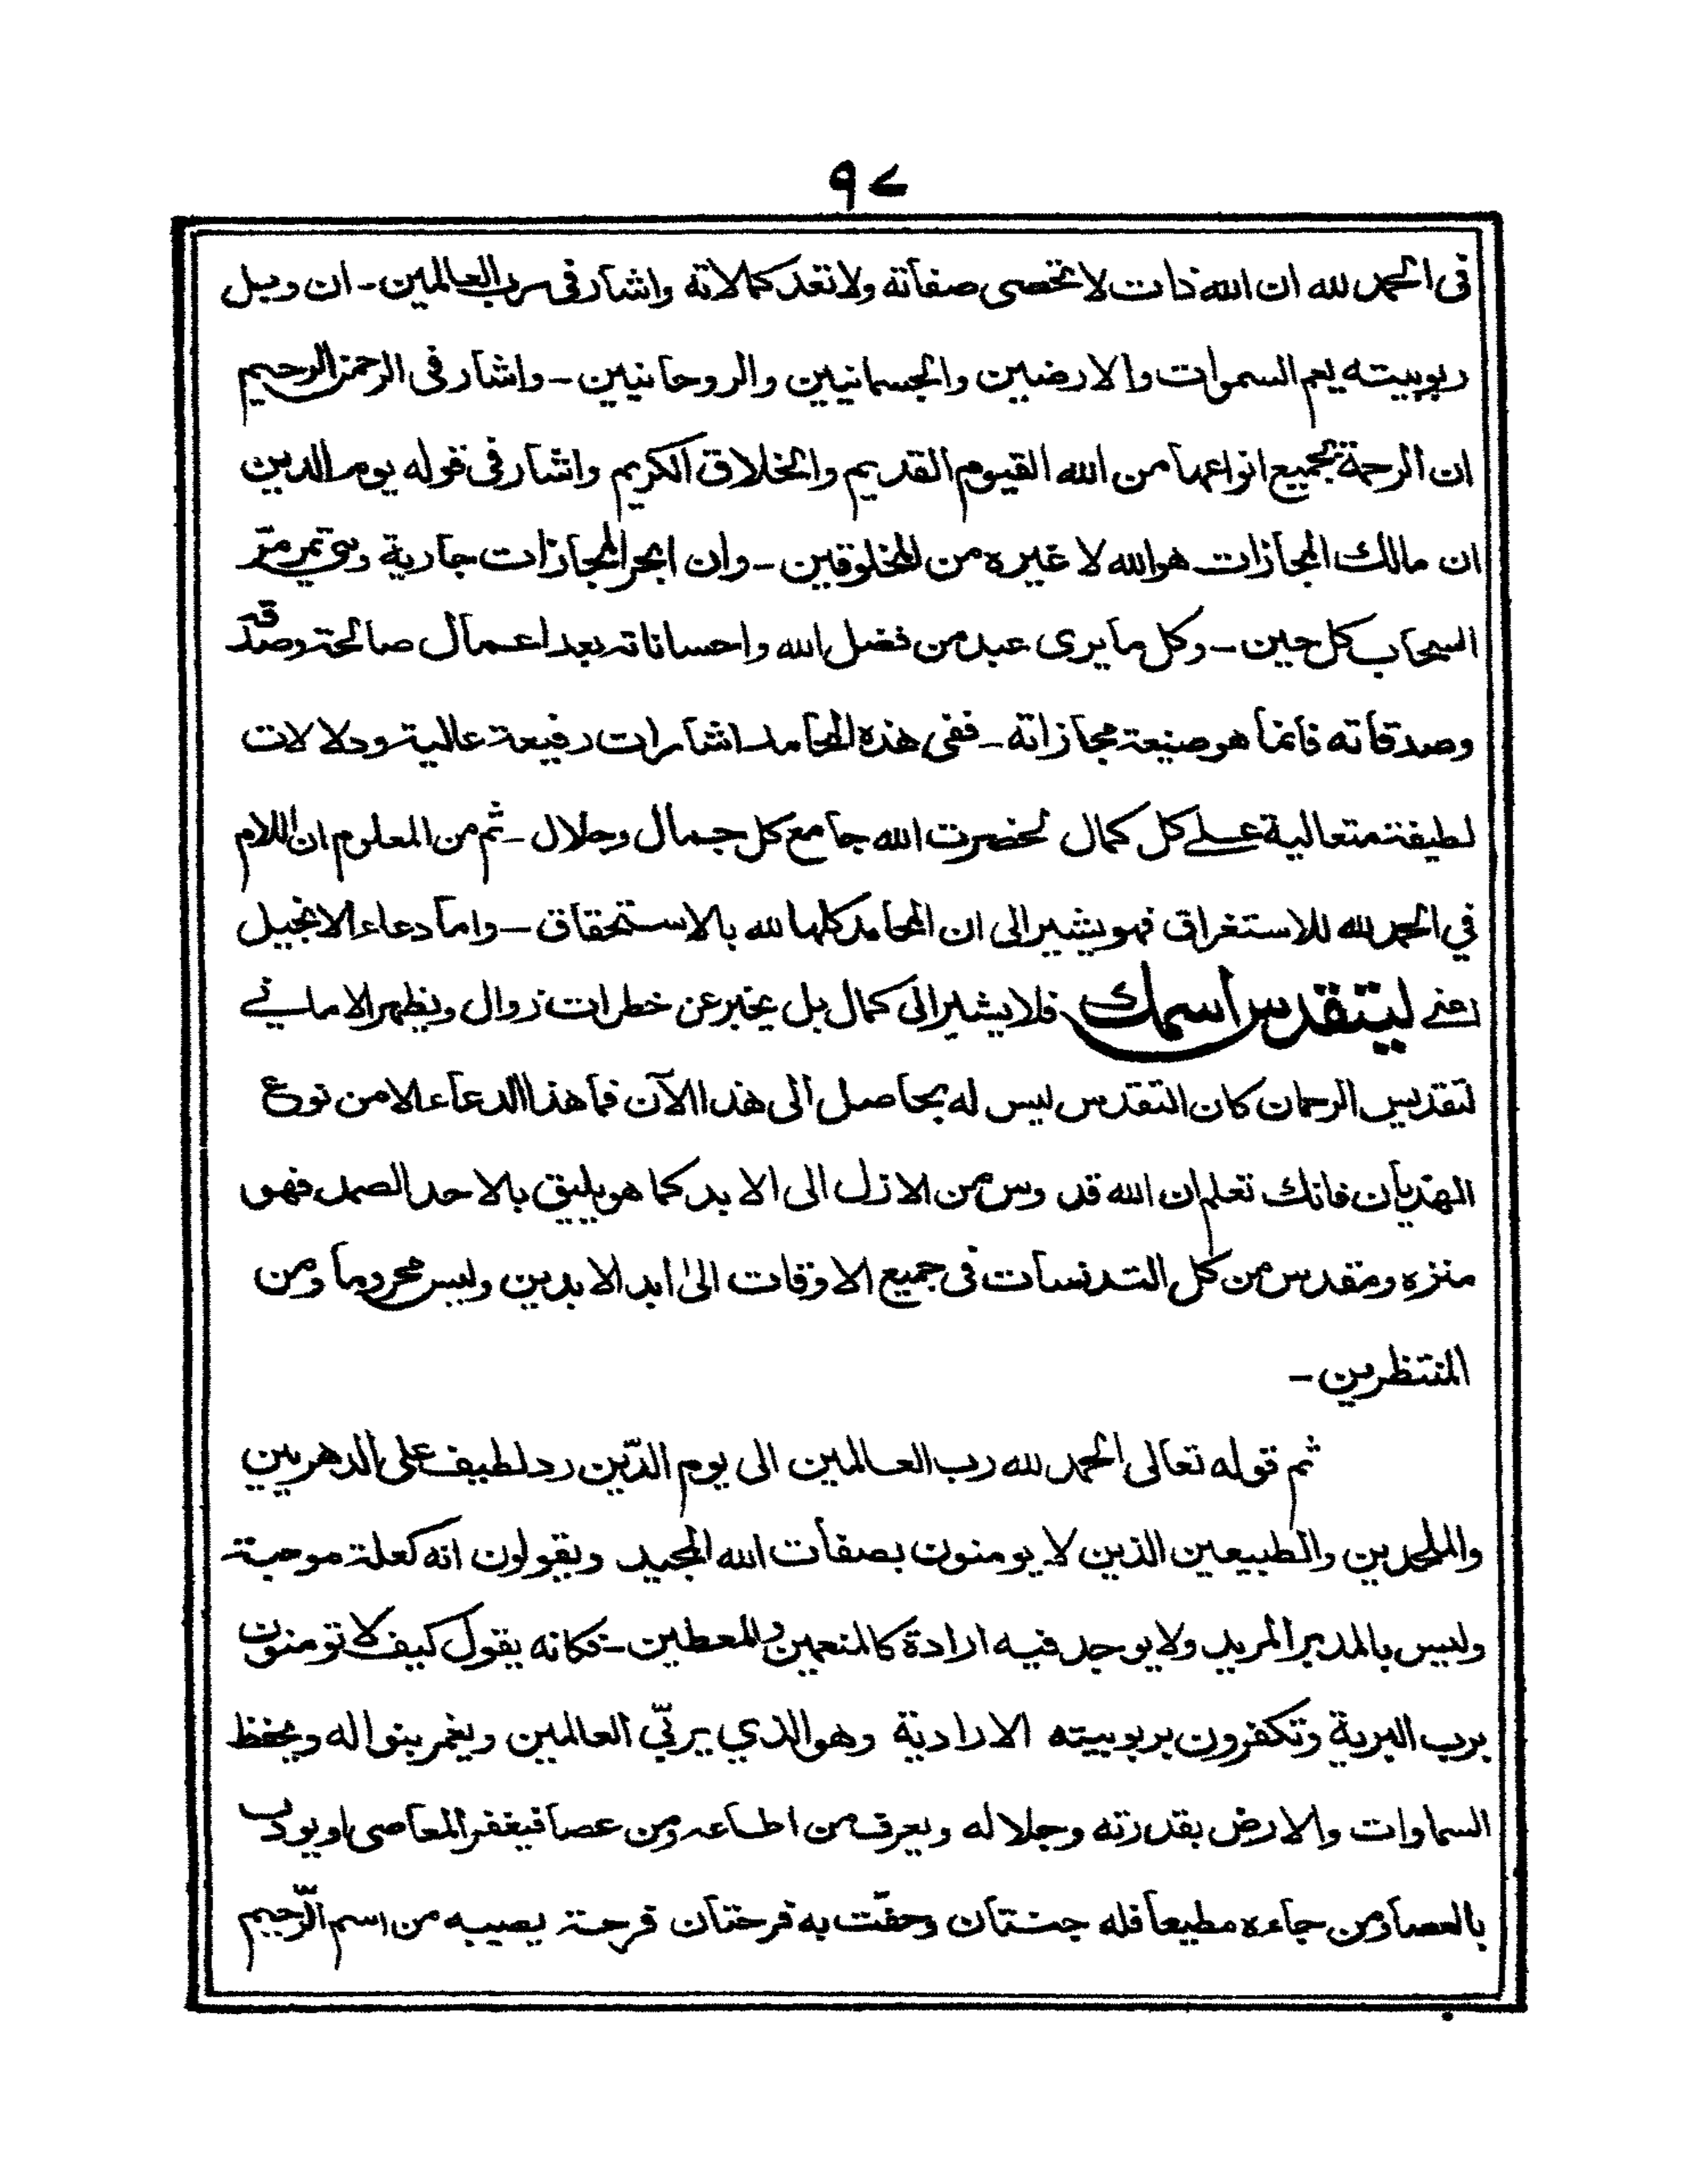 ٩٧
فى الحمد لله ان الله ذات لا تحصى صفاته ولا تعد كمالاته واشار فى رب العالمين - ان وبل
ربوبيته يعم السموات والارضين والجسمانيين والروحانيين - واشار فى الرحمن الرحيم
ان الرحمة بجميع انواعها من الله القيوم القديم والخلاق الكريم واشار فى قوله يوم الدين
ان مالك المجازات هو الله لا غيره من المخلوقين - وان ابحر المجازات جارية وهى تمر مرّ
السحاب كل حين - وكل ما يرى عبد من فضل الله واحساناته بعد اعمال صالحة وصدقه
وصدقاته فانما هو صنيعة مجازاته - ففى هذه المحامد اشارات رفيعة عالية ودلالات
لطيفة متعالية على كل كمال لحضرت الله جامع كل جمال وجلال - ثم من المعلوم ان اللام
في الحمد لله للاستغراق فهو يشير الى ان المحامد كلها لله بالاستحقاق - واما دعاء الانجيل
اعنى ليتقدس اسمك فلا يشير الى كمال بل يخبر عن خطرات زوال ويظهر الامانى
لتقديس الرحمان كان التقدس ليس له بحاصل الى هذا الآن فما هذا الدعاء الا من نوع
الهذيان فانك تعلم ان الله قدوس من الازل الى الابد كما هو يليق بالاحد الصمد فهو
منزه ومقدس من كل التدنسات فى جميع الاوقات الى ابد الابدين وليس محروما ومن
المنتظرين -
ثم قوله تعالى الحمد لله رب العالمين الى يوم الدّين رد لطيف على الدهريين
والملحدين والطبيعين الذين لا يومنون بصفات الله المجيد ويقولون انه كعلة موجبة
وليس بالمدبر المريد ولا يوجد فيه ارادة كالمنعمين والمعطين - فكانه يقول كيف لا تومنون
برب البرية وتكفرون بربوبيته الارادية وهو الذي يربّي العالمين ويغمر بنواله ويحفظ
السماوات والارض بقدرته وجلاله ويعرف من اطاعه ومن عصا فيغفر المعاصى او يودب
بالعصا ومن جاءه مطيعا فله جنتان وحفّت به فرحتان فرحة يصيبه من اسم الرّحيم